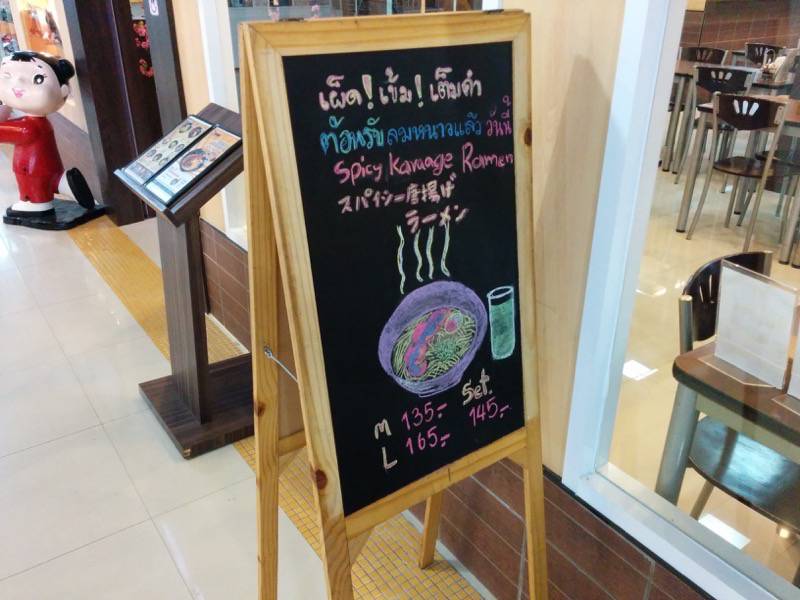 เผ็ด! เข้ม! เต็มคำ
ต้อนรับลมหนาวแล้ว วันนี้
Spicy Karaage Ramen
スパイシー唐揚げ
ラーメン
Set.
M 135.- 145.-
L 165.-